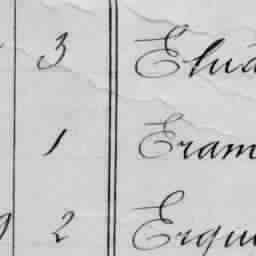 3 Elva
1 Eram
2 Erqu